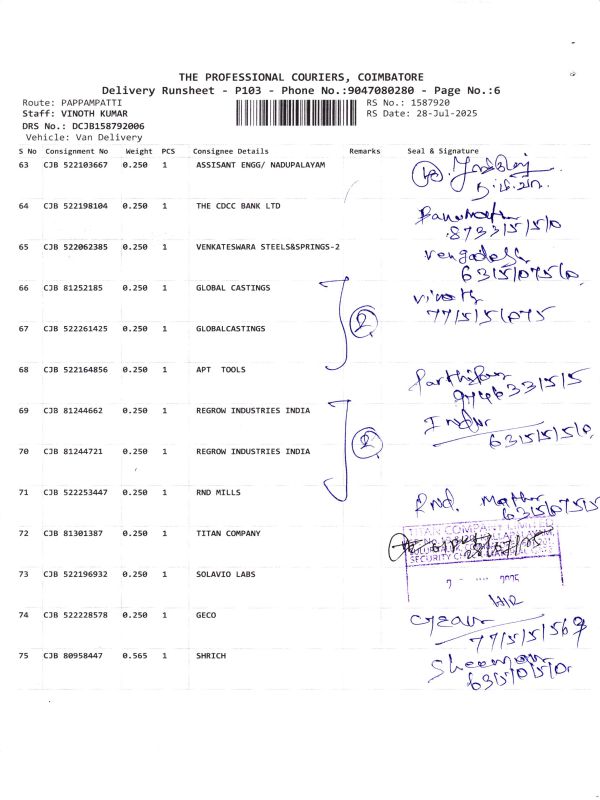 THE PROFESSIONAL COURIERS, COIMBATORE
Delivery Runsheet - P103 - Phone No.:9047080280 - Page No.:6
Route: PAPPAMPATTI RS No.: 1587920
Staff: VINOTH KUMAR RS Date: 28-Jul-2025
DRS No.: DCJB158792006
Vehicle: Van Delivery
S No Consignment No Weight PCS Consignee Details Remarks Seal & Signature
63 CJB 522103667 0.250 1 ASSISANT ENGG/ NADUPALAYAM
64 CJB 522198104 0.250 1 THE CDCC BANK LTD
65 CJB 522062385 0.250 1 VENKATESWARA STEELS&SPRINGS-2 Vengadesh
66 CJB 81252185 0.250 1 GLOBAL CASTINGS Vinoth
2
67 CJB 522261425 0.250 1 GLOBALCASTINGS
68 CJB 522164856 0.250 1 APT TOOLS
69 CJB 81244662 0.250 1 REGROW INDUSTRIES INDIA
2
70 CJB 81244721 0.250 1 REGROW INDUSTRIES INDIA
71 CJB 522253447 0.250 1 RND MILLS RND.
72 CJB 81301387 0.250 1 TITAN COMPANY
TITAN COMPANY LIMITED
28/07/25
73 CJB 522196932 0.250 1 SOLAVIO LABS
74 CJB 522228578 0.250 1 GECO
75 CJB 80958447 0.565 1 SHRICH